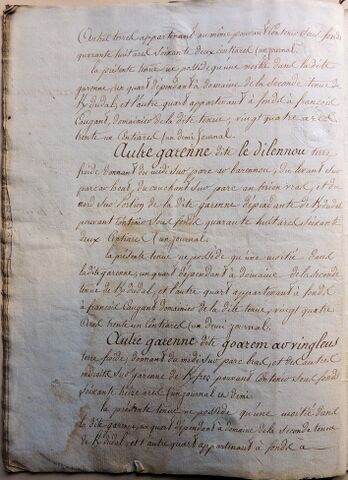 autres terres appartenant au même pouvant contenir sous fonds
quarante huit ares soixante deux centiares (un journal.
la présente tenue ne possède qu'une moitié dans la dite
garenne, un quart dépendant à domaine de la seconde tenue
de Kdudal, et l'autre quart appartenant à fonds à françois
Coupant, domainier de la dite tenue, vingt quatre ares
trente un centiares (un demi journal.
Autre garenne dite le dilennou terre
froide donnant du midi sur parc ar barennou, du levant sur
parc ar hoat, du couchant sur parc an trion vras, et du
nord sur portion de la dite garenne dépendante de Kdudal
pouvant contenir sous fonds quarante huit ares soixante
deux centiares (un journal.
la présente tenue ne possède qu'une moitié dans
la dite garenne, un quart dépendant à domaine de la seconde
tenue de Kdudal, et l'autre quart appartenant à fonds
à françois Coupant domainier de la dite tenue, vingt quatre
ares trente un centiares (un demi journal.
Autre garenne dite goarem ar vingleus
terre froide, donnant du midi sur parc bras, et des autres
endroits sur garenne de pouvant contenir sous fonds
soixante treize ares (un journal et demi
la présente tenue ne possède qu'une moitié dans
la dite garenne, un quart dépendant à domaine de la seconde tenue
de Kdudal, et l'autre quart appartenant à fonds à